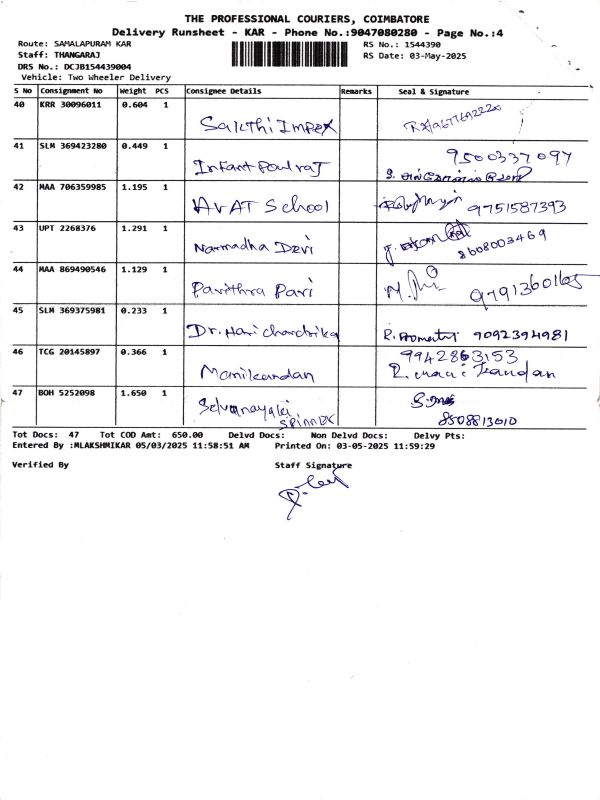 THE PROFESSIONAL COURIERS, COIMBATORE
Delivery Runsheet - KAR - Phone No.:9047080280 - Page No.:4
Route: SAMALAPURAM KAR
RS No.: 1544390
Staff: THANGARAJ
RS Date: 03-May-2025
DRS No.: DCJB154439004
Vehicle: Two Wheeler Delivery
S No Consignment No Weight PCS Consignee Details Remarks Seal & Signature
40 KRR 30096011 0.604 1
Sakthi Impex
41 SLM 369423280 0.449 1
9500337097
Infant Paul raj
42 MAA 706359985 1.195 1
AVAT School 9751587393
43 UPT 2268376 1.291 1
Narmadha Devi 8608003469
44 MAA 869490546 1.129 1
Pavithra Pari
45 SLM 369375981 0.233 1
Dr. Hari Chandrika 9092394981
46 TCG 20145897 0.366 1
9942863153
Manikandan
47 BOH 5252098 1.650 1
Selvanayaki
Spinnex 8508813010
Tot Docs: 47 Tot COD Amt: 650.00 Delvd Docs: Non Delvd Docs: Delvy Pts:
Entered By :MLAKSHMIKAR 05/03/2025 11:58:51 AM Printed On: 03-05-2025 11:59:29
Verified By Staff Signature